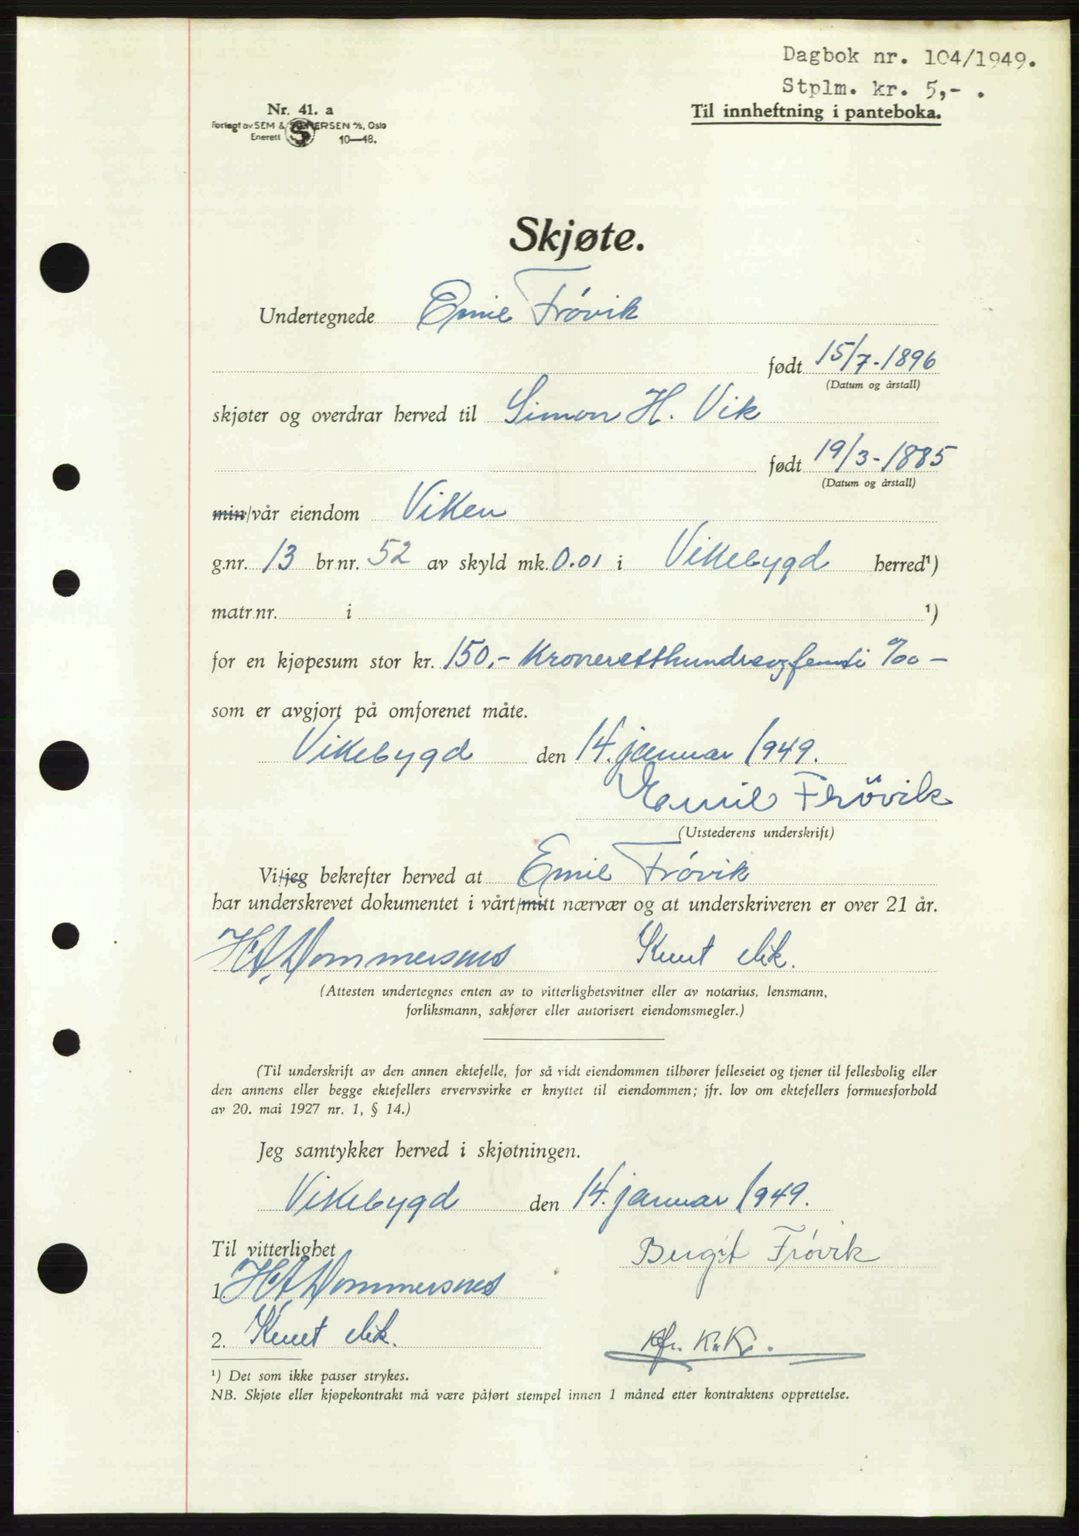 Dagbok nr. 104/1949.
Stplm. kr. 5,- .
Til innheftning i panteboka.
Nr. 41. a
Forlagt av SEM & STENERSEN A/S, Oslo
Enerett 10—48.
Skjøte.
Undertegnede Emil Frövik
født 15/7-1896
(Datum og årstall)
skjøter og overdrar herved til Simon H. Vik
født 19/3-1885
(Datum og årstall)
min/vår eiendom Viken
g.nr. 13 br.nr. 52 av skyld mk. 0.01 i Vikebygd herred¹)
matr.nr. i ¹)
for en kjøpesum stor kr. 150,- Kroneretthundreogfemti %oo -
som er avgjort på omforenet måte.
Vikebygd den 14. januar 1949.
Emil Frövik
(Utstederens underskrift)
Vi/jeg bekrefter herved at Emil Frövik
har underskrevet dokumentet i vårt/mitt nærvær og at underskriveren er over 21 år.
Knut
(Attesten undertegnes enten av to vitterlighetsvitner eller av notarius, lensmann,
forliksmann, sakfører eller autorisert eiendomsmegler.)
(Til underskrift av den annen ektefelle, for så vidt eiendommen tilhører felleseiet og tjener til fellesbolig eller
den annens eller begge ektefellers ervervsvirke er knyttet til eiendommen; jfr. lov om ektefellers formuesforhold
av 20. mai 1927 nr. 1, § 14.)
Jeg samtykker herved i skjøtningen.
Vikebygd den 14. januar 1949.
Til vitterlighet
Bergit Frövik
1.
2. Knut
Kfr. K.K.
¹) Det som ikke passer strykes.
NB. Skjøte eller kjøpekontrakt må være påført stempel innen 1 måned etter kontraktens opprettelse.